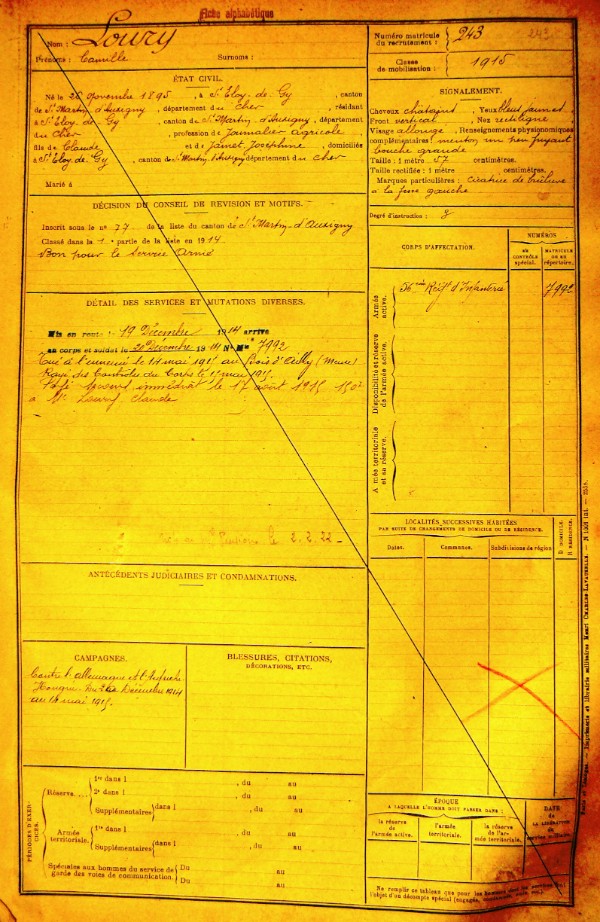 Fiche alphabétique
Nom : Loury
Prénoms : Camille Surnoms :
ÉTAT CIVIL.
Né le 26 novembre 1895, à St Eloy-de-Gy, canton
de St Martin d'Auxigny, département du Cher, résidant
à St Eloy-de-Gy, canton de St Martin d'Auxigny, département
du Cher, profession de Journalier agricole
fils de Claude et de Jamet Joséphine, domiciliés
à St Eloy de Gy, canton de St Martin d'Auxigny département du Cher
Marié à
DÉCISION DU CONSEIL DE REVISION ET MOTIFS.
Inscrit sous le no 77 de la liste du canton de St Martin-d'Auxigny
Classé dans la 1e partie de la liste en 1914.
Bon pour le Service Armé
DÉTAIL DES SERVICES ET MUTATIONS DIVERSES.
Mis en route le 19 Décembre 1914 arrivé
au corps et soldat le 20 Décembre 1914 No Mle 7992
Tué à l'ennemi le 14 mai 1915 au Bois d'Ailly (Meuse)
Rayé des Contrôles du Corps le mai 1915.
Payé secours immédiat le 17 août 1915 150f
à Mr Loury Claude
le 2.2.22
ANTÉCÉDENTS JUDICIAIRES ET CONDAMNATIONS.
CAMPAGNES.
Contre l'Allemagne et l'Autriche
Hongrie. Du 20 Décembre 1914
au 14 mai 1915.
BLESSURES, CITATIONS,
DÉCORATIONS, ETC.
PÉRIODES D'EXERCICES.
Réserve
1re dans l , du au
2e dans l , du au
Supplémentaires dans l , du au
Armée territoriale.
1re dans l , du au
Supplémentaires dans l , du au
Spéciales aux hommes du service de
garde des voies de communication.
Du au
Du au
Numéro matricule
du recrutement : 243 243
Classe
de mobilisation : 1915
SIGNALEMENT.
Cheveux châtains, Yeux bleus jaunes
Front vertical, Nez rectiligne
Visage allongé, Renseignements physionomiques
complémentaires : menton un peu fuyant
bouche grande
Taille : 1 mètre 57 centimètres.
Taille rectifiée : 1 mètre centimètres.
Marques particulières : cicatrice de brûlure
à la fesse gauche
Degré d'instruction : 3
CORPS D'AFFECTATION.
NUMÉROS
au
CONTRÔLE
spécial.
MATRICULE
OU AU
répertoire.
Armée
active.
56ème Régt d'Infanterie 7992
Disponibilité et réserve
de l'armée active.
Armée territoriale
et sa réserve.
LOCALITÉS SUCCESSIVES HABITÉES
PAR SUITE DE CHANGEMENTS DE DOMICILE OU DE RÉSIDENCE.
Dates. Communes. Subdivisions de région
D. DOMICILE.
R. RÉSIDENCE.
ÉPOQUE
A LAQUELLE L'HOMME DOIT PASSER DANS :
la réserve
de
l'armée active.
l'armée
territoriale.
la réserve
de l'armée
territoriale.
DATE
DE
LA LIBÉRATION
du
service militaire.
Ne remplir ce tableau que pour les hommes
l'objet d'un décompte spécial (engagés,
Imprimerie et librairie militaires Henri CHARLES-LAVAUZELLE